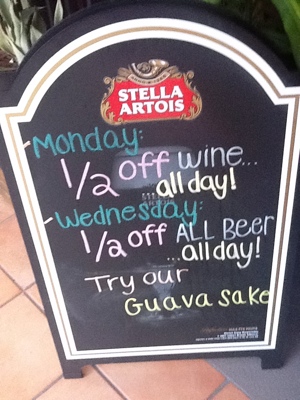 STELLA
ARTOIS
Monday:
1/2 off wine...
all day!
Wednesday:
1/2 off ALL BEER
...all day!
Try our
Guava sake